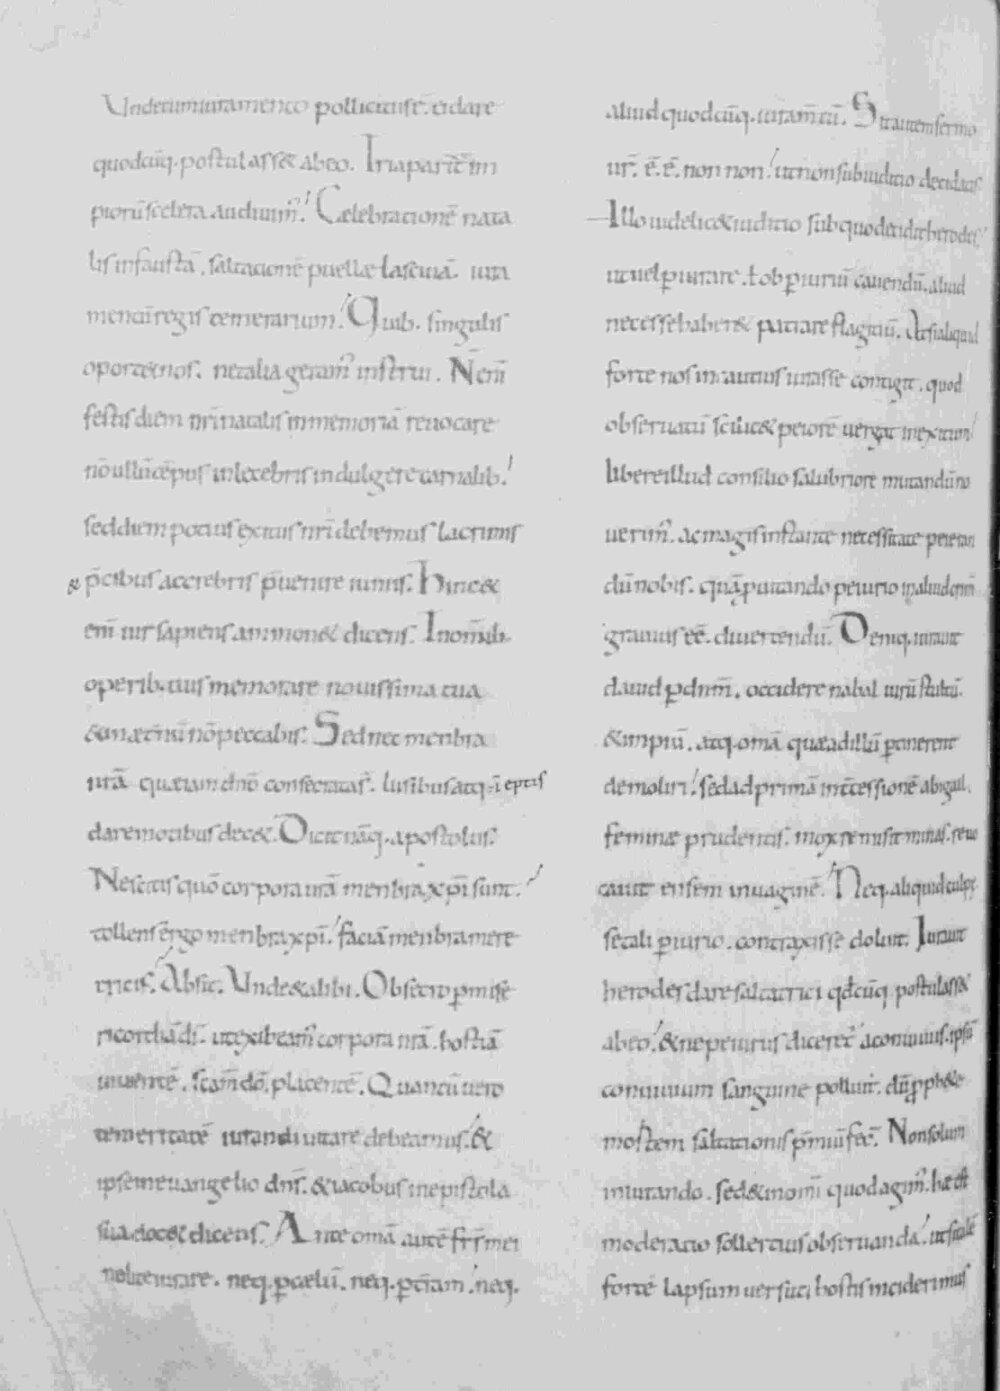 Undecumiuramento pollicitusē. ei dare
quodcūq. postulass& abeo. Tria parit̄ im
piorū scelera audiuim̄. Celebrationē nata
lis infaustā. saltationē puellæ lasciuā. iura
mentū regis temerarium. Quib. singulis
oport& nos. netalia geram̄ instrui. Nēm̄
festis diem nr̄i natalis inmemoriā reuocare
nō ullūtēpus inlecebris indulgere carnalib.
sed diem potius exitus nr̄i debemus lacrimis
& p̄cibus accrebris p̄uenire ieiuniis. Hinc&
enī uir sapiens ammon& dicens. In omīb.
operib. tuis memorare nouissima tua
& inæt̄nū nō peccabis. Sed nec menbra
nr̄ā quæ iam dn̄o consecratas̄. lusibus atq. ī eptis
dare motibus dec&. Dicit nāq. apostolus.
Nescitis quō corpora urā menbra xp̄i sunt.
tollens ērgo menbra xp̄i. faciā menbra mere
tricis. Absit. Unde & alibi. Obsecro p̄ misē
ricordiā dī. ut exibeam̄ corpora nrā. hostiā
uiuentē. scām dō. placentē. Quantū uero
temeritatē iurandi uitare debeamus. &
ipse ineuangelio dnī. & iacobus inepistola
sua doc& dicens. Ante omā autē frī mei
nolite iurare. neq. p̄ cælū. neq. p̄ t̄ram. neq.
aliud quodcūq. iuram̄tū. Sit autem sermo
ur̄. ē. ē. non non. ut non sub iuditio decidatis
Illo uidelic& iuditio sub quo decidit herodes.
ut uel p̄iurare. ł ob p̄iuriū cauendū. aliud
necesse haber& patrare flagitiū. At si aliquid
forte nos incautius iurasse contigit. quod
obseruatū scilic& peiorē uergat inexitum
libere illud consilio salubriore mutandū no
uerim̄. ac magis instante necessitate peieran
dū nobis. quā p̄ uitando peiurio inaliud crim̄
grauius eē. diuertendū. Deniq. iurauit
dauid p̄ dnm̄. occidere nabal uirū stultū.
& impiū. atq. omā quæ ad illū p̄tinerent
demoliri. sed ad primā int̄cessionē abigail.
feminæ prudentis. mox remisit minas. reuo
cauit ensem inuaginē. Neq. aliquid culpę
se tali p̄iurio. contraxisse doluit. Iurauit
herodes dare saltatrici qd̄cūq. postulass&
abeo. & ne peiurus diceret̄ aconuiuis. ipsū
conuiuium sanguine polluit. dū p̄ph&e
mostem saltationis p̄miū fec̄. Non solum
iniurando. sed & inomī quod agim̄. hæc ē
moderatio sollertius obseruanda. ut si talē
forte lapsum uersuti hostis inciderimus